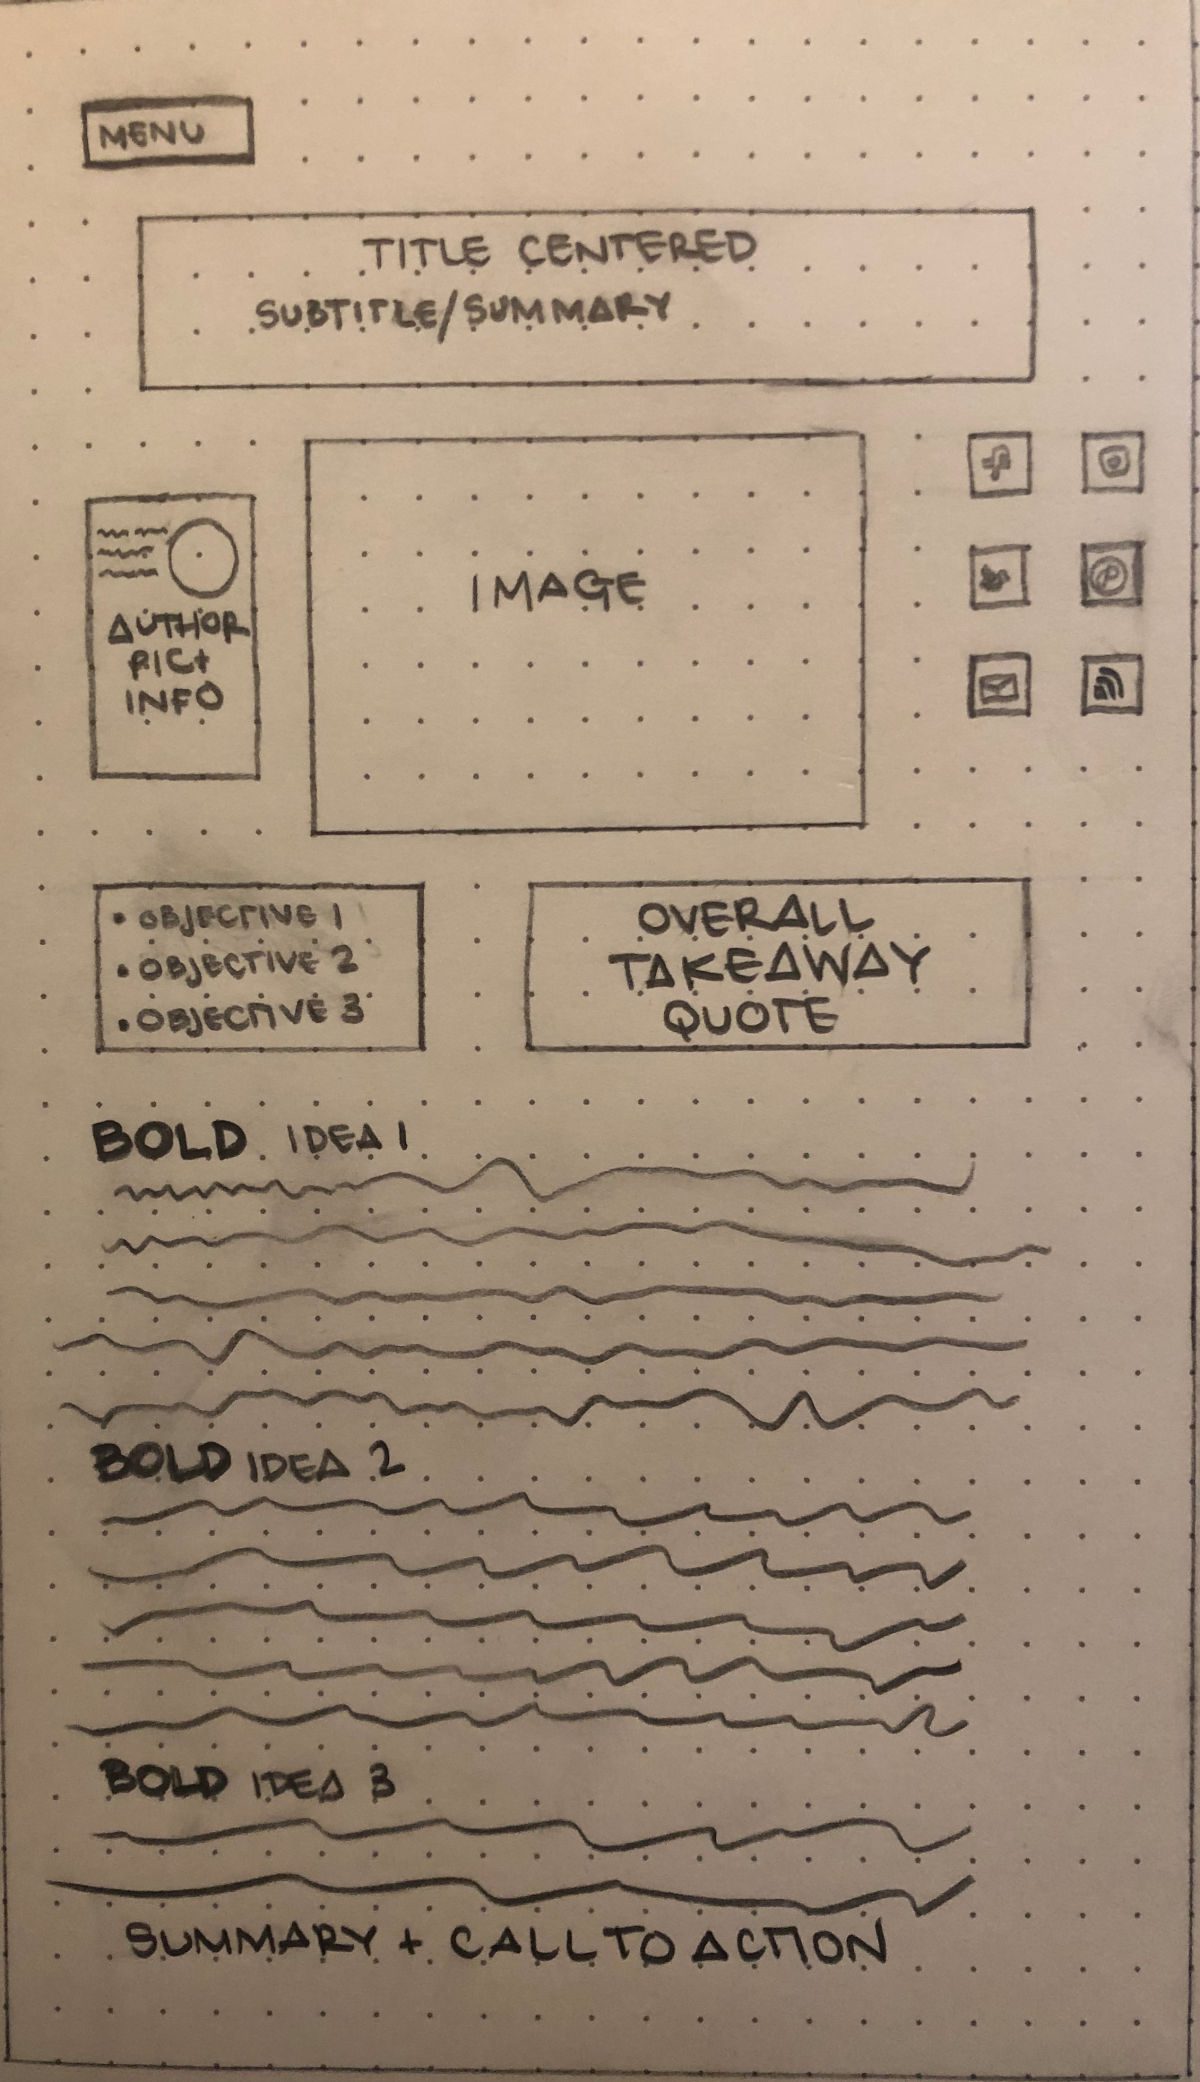 MENU
TITLE CENTERED
SUBTITLE/SUMMARY
AUTHOR
PIC+
INFO
IMAGE
• OBJECTIVE 1
• OBJECTIVE 2
• OBJECTIVE 3
OVERALL
TAKEAWAY
QUOTE
BOLD IDEA 1
BOLD IDEA 2
BOLD IDEA 3
SUMMARY + CALL TO ACTION